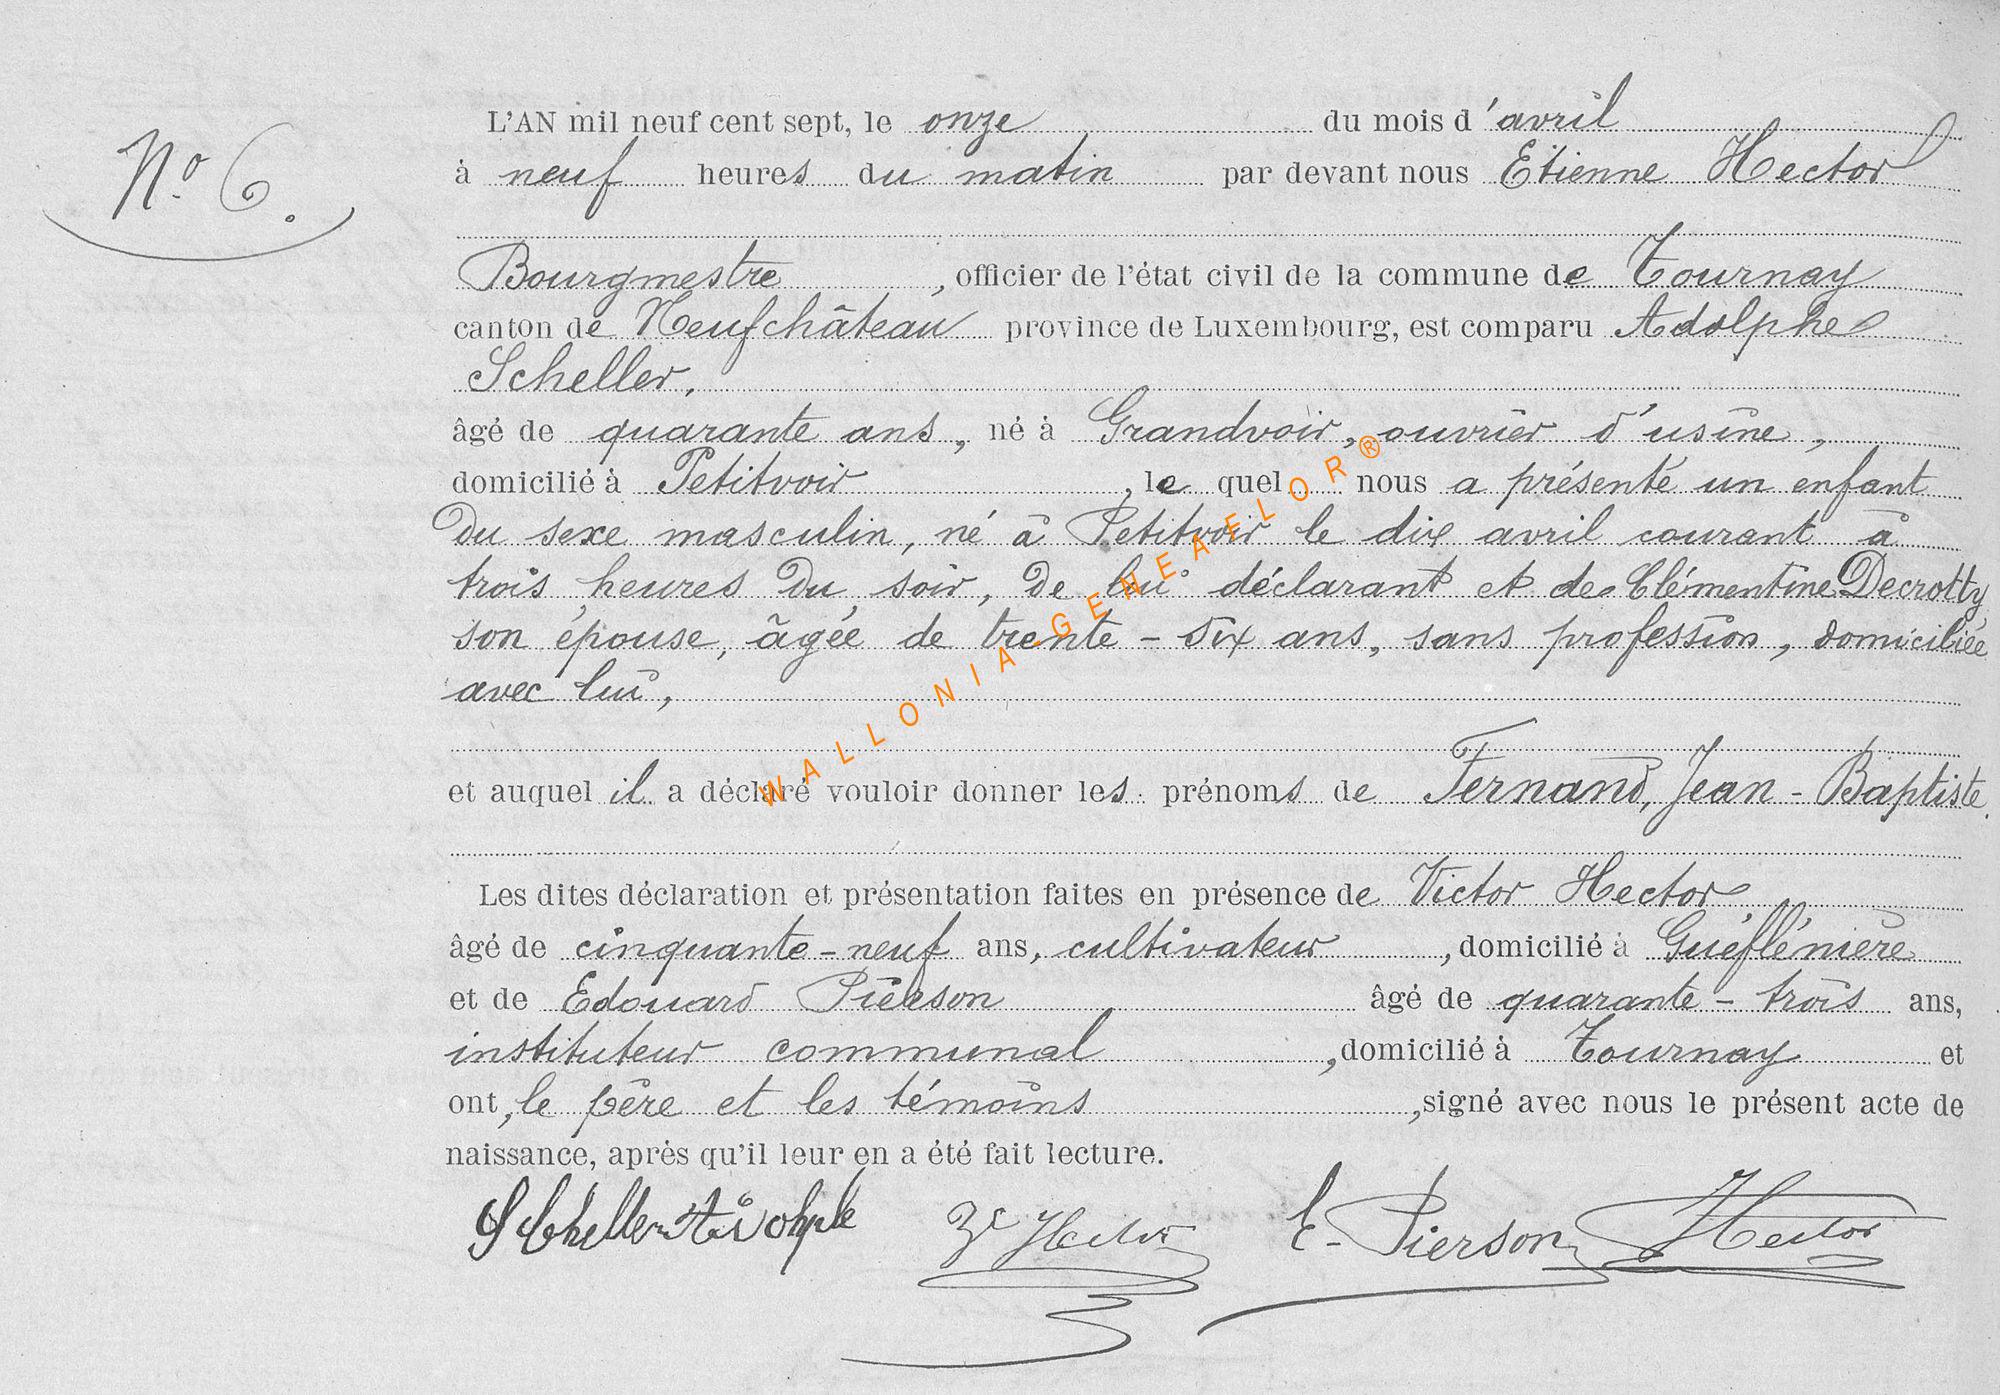 N° 6.
L'AN mil neuf cent sept, le onze du mois d'avril
à neuf heures du matin par devant nous Etienne Hector
Bourgmestre, officier de l'état civil de la commune de Tournay
canton de Neufchâteau province de Luxembourg, est comparu Adolphe
Scheller,
âgé de quarante ans, né à Grandvoir, ouvrier d'usine,
domicilié à Petitvoir, le quel nous a présenté un enfant
du sexe masculin, né à Petitvoir le dix avril courant à
trois heures du soir, de lui déclarant et de Clémentine Decrotty
son épouse, âgée de trente-six ans, sans profession, domiciliée
avec lui,
et auquel il a déclaré vouloir donner les prénoms de Fernand, Jean-Baptiste.
Les dites déclaration et présentation faites en présence de Victor Hector,
âgé de cinquante-neuf ans, cultivateur, domicilié à Gueflénière
et de Edouard Pierson âgé de quarante-trois ans,
instituteur communal, domicilié à Tournay et
ont, le père et les témoins, signé avec nous le présent acte de
naissance, après qu'il leur en a été fait lecture.
Scheller Adolphe Hector E. Pierson Hector
WALLONIA-GENEAFLOR®